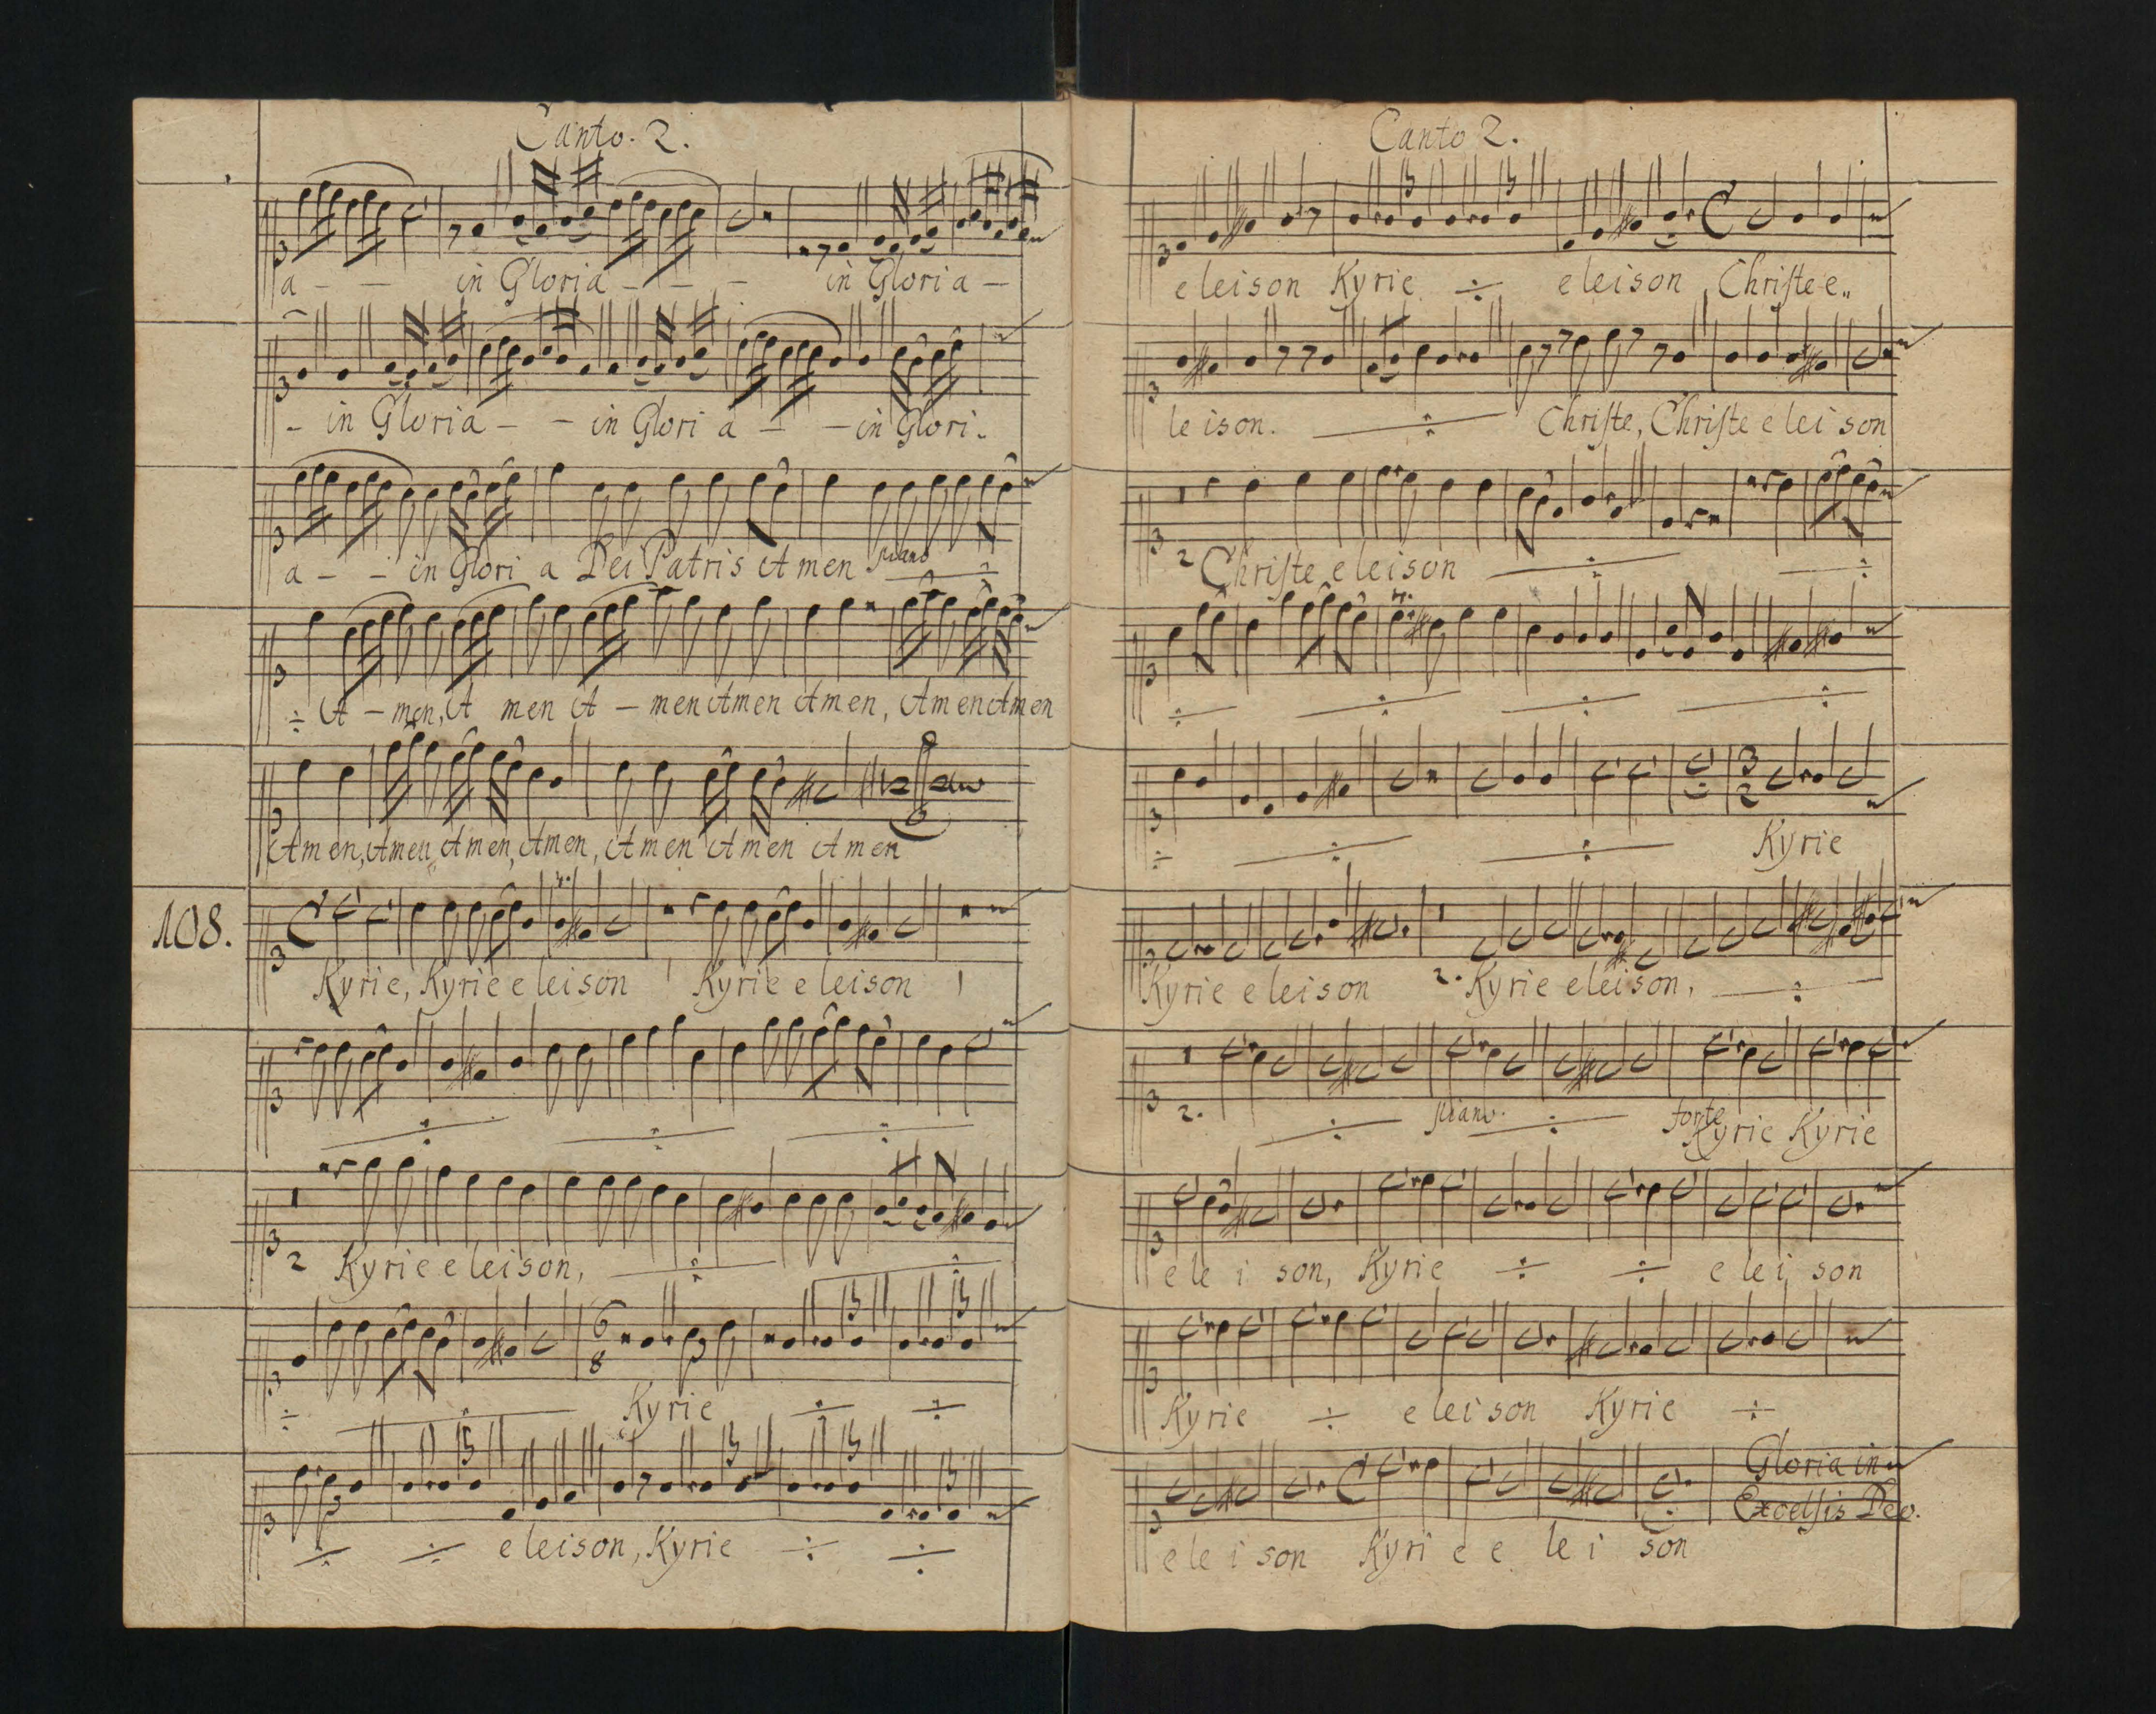 Canto. 2.
a - - in Gloria - - - in Gloria -
- in Gloria - - in Glori a - - in Glori.
a - - in Glori a Dei Patris Amen piano ÷
÷ A - men, A men A - men Amen Amen, Amen Amen
Amen, Amen, Amen, Amen, Amen Amen Amen
108.
Kyrie, Kyrie eleison Kyrie eleison
÷ ÷ ÷
2 Kyrie eleison, ÷ ÷
6
8
÷ ÷ Kyrie ÷ ÷
÷ ÷ eleison, Kyrie ÷ ÷
Canto 2.
eleison Kyrie ÷ eleison Christe e„
leison. ÷ Christe, Christe eleison
2 Christe eleison ÷ ÷
÷ ÷ ÷ ÷
3
2
÷ ÷ ÷ Kyrie
Kyrie eleison 2. Kyrie eleison, ÷
2. ÷ piano. ÷ forte Kyrie Kyrie
e le i son, Kyrie ÷ ÷ e lei son
Kyrie ÷ eleison Kyrie ÷
Gloria in
Excelsis Deo.
e le i son Kyri e e le i son